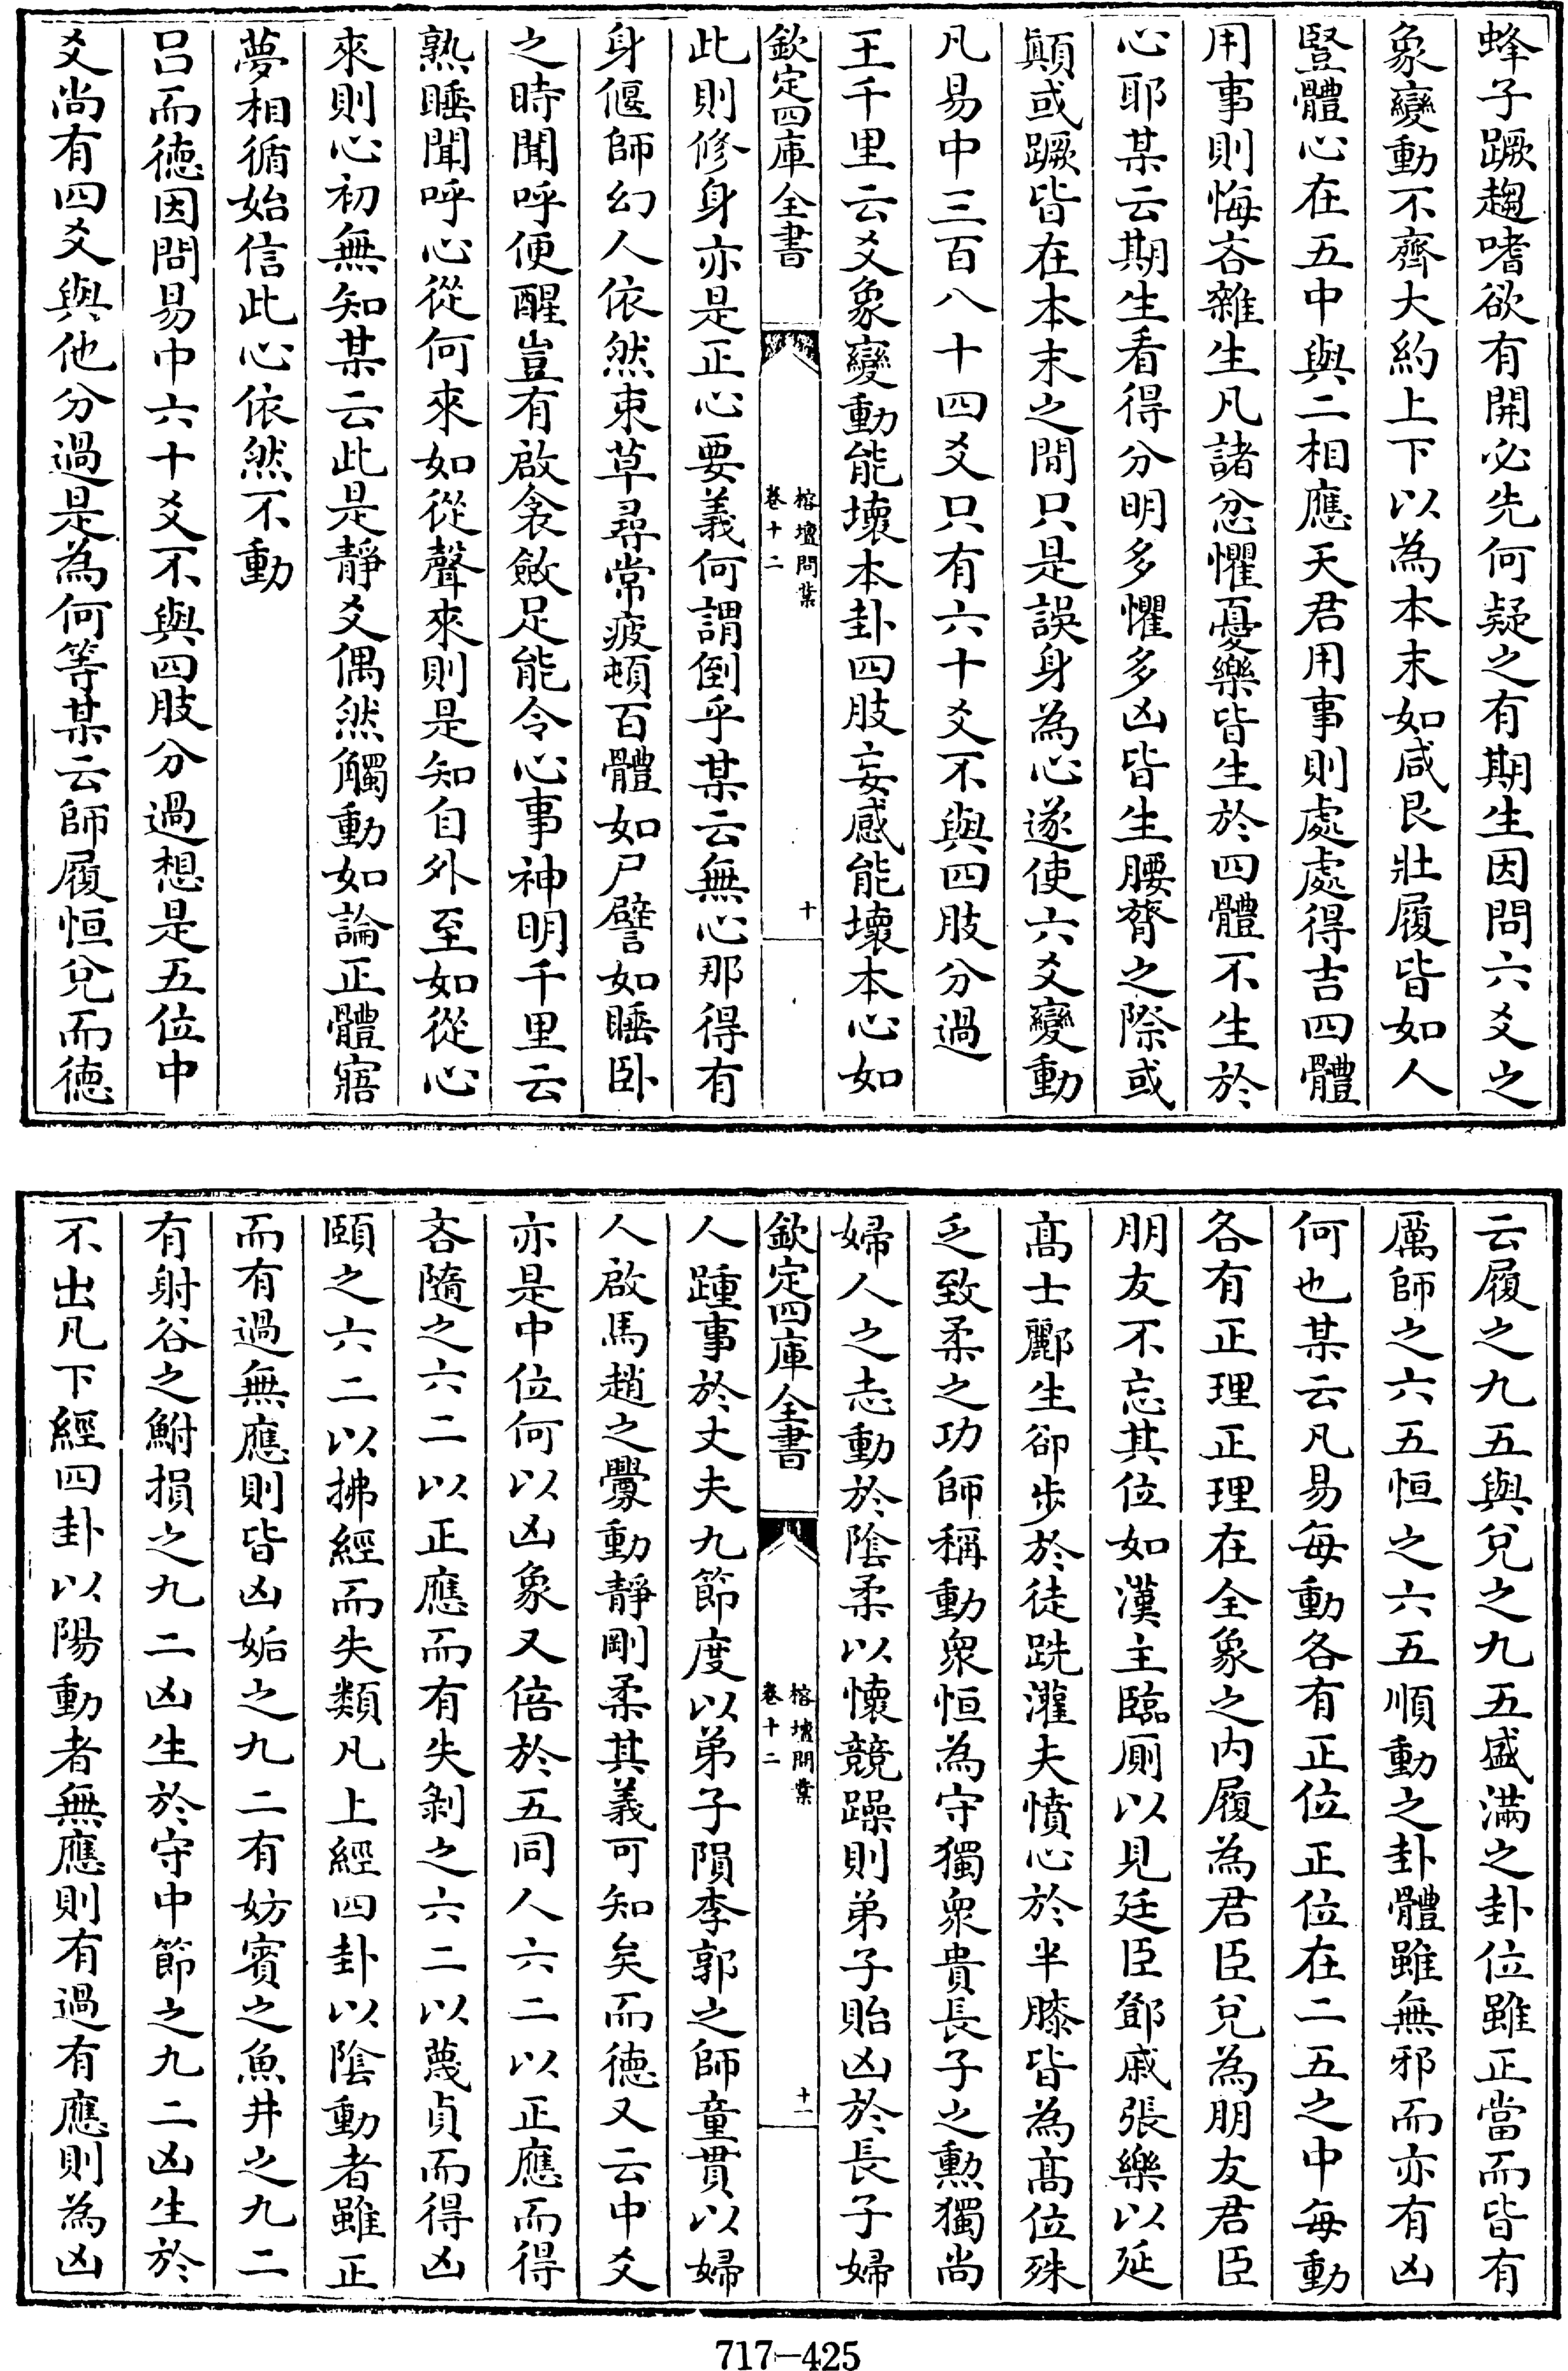 蜂子蹶趨嗜欲有開必先何疑之有期生因問六爻之
象變動不齊大約上下以為本末如咸艮壯履皆如人
豎體心在五中與二相應天君用事則處處得吉四體
用事則悔吝雜生凡諸忿懼憂樂皆生於四體不生於
心耶某云期生看得分明多懼多凶皆生腰膂之際或
顛或蹶皆在本末之間只是誤身為心遂使六爻變動
凡易中三百八十四爻只有六十爻不與四肢分過
王千里云爻象變動能壞本卦四肢妄感能壞本心如
欽定四庫全書
榕壇問業
卷十二
十
此則修身亦是正心要義何謂倒乎某云無心那得有
身偃師幻人依然束草尋常疲頓百體如尸譬如睡臥
之時聞呼便醒豈有啟衾斂足能令心事神明千里云
熟睡聞呼心從何來如從聲來則是知自外至如從心
來則心初無知某云此是靜爻偶然觸動如論正體寤
夢相循始信此心依然不動
呂而德因問易中六十爻不與四肢分過想是五位中
爻尚有四爻與他分過是為何等某云師履恒兌而德
云履之九五與兌之九五盛滿之卦位雖正當而皆有
厲師之六五恒之六五順動之卦體雖無邪而亦有凶
何也某云凡易每動各有正位正位在二五之中每動
各有正理正理在全象之內履為君臣兌為朋友君臣
朋友不忘其位如漢主臨厠以見廷臣鄧戚張樂以延
高士酈生卻步於徒跣灌夫憤心於半膝皆為高位殊
乏致柔之功師稱動衆恒為守獨衆貴長子之勲獨尚
婦人之志動於陰柔以懷競躁則弟子貽凶於長子婦
欽定四庫全書
榕壇問業
卷十二
十一
人踵事於丈夫九節度以弟子隕李郭之師童貫以婦
人啟馬趙之釁動靜剛柔其義可知矣而德又云中爻
亦是中位何以凶象又倍於五同人六二以正應而得
吝隨之六二以正應而有失剝之六二以蔑貞而得凶
頤之六二以拂經而失類凡上經四卦以陰動者雖正
而有過無應則皆凶姤之九二有妨賓之魚井之九二
有射谷之鮒損之九二凶生於守中節之九二凶生於
不出凡下經四卦以陽動者無應則有過有應則為凶
717-425